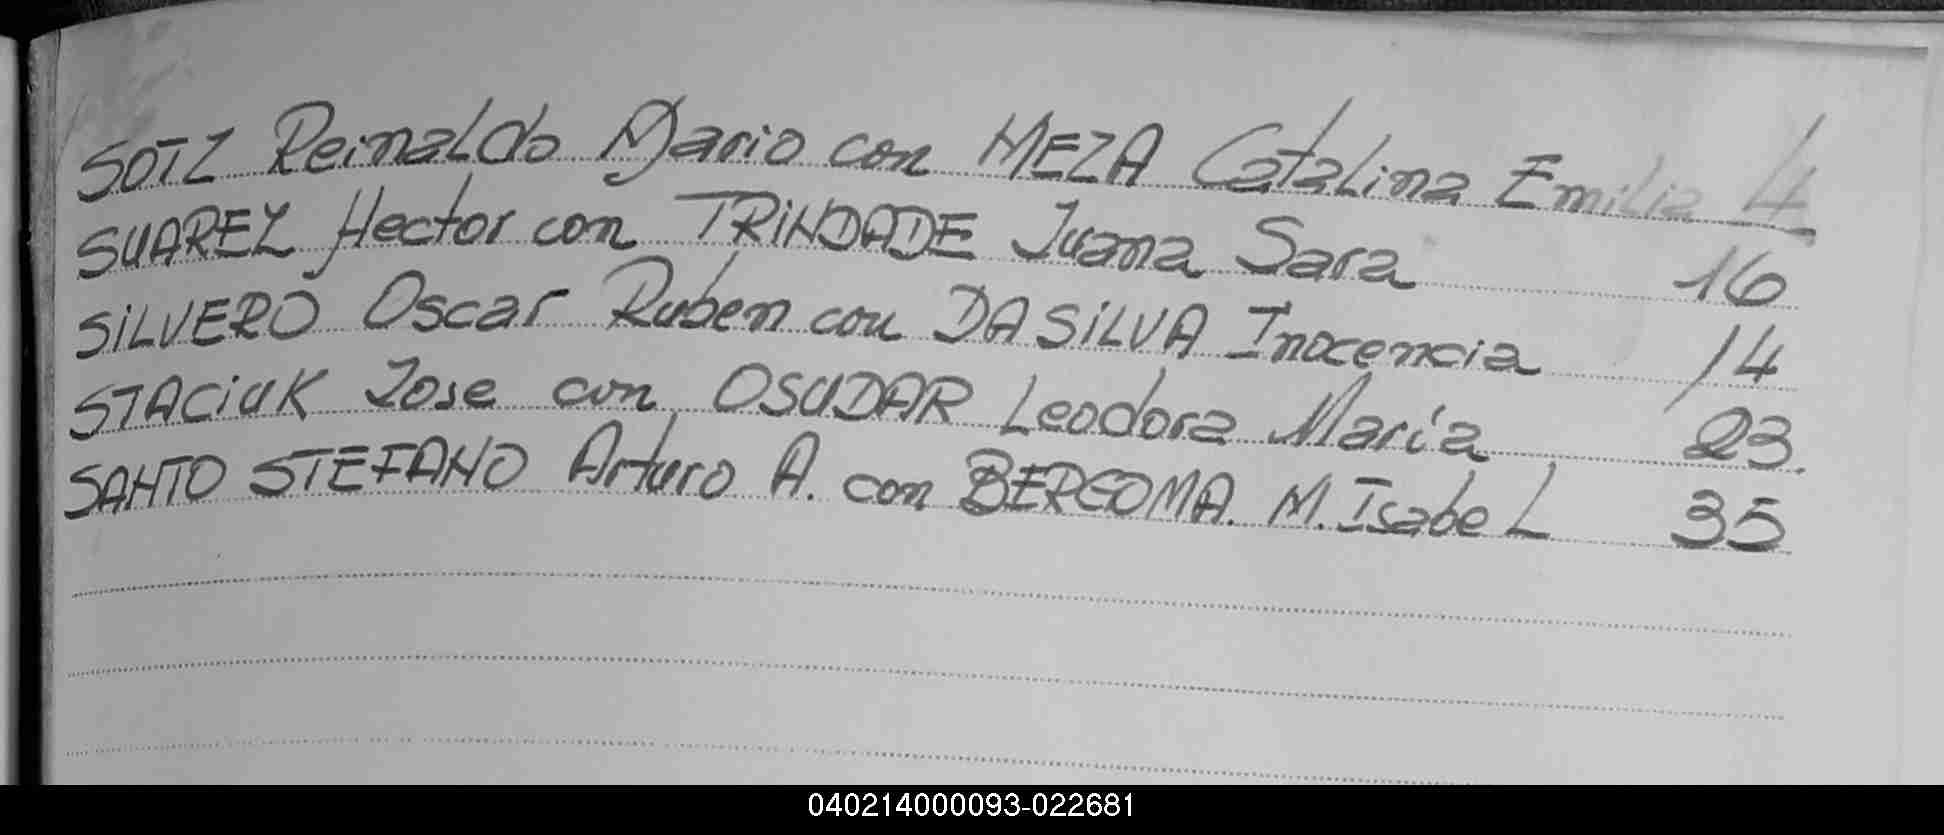 SOTZ Reinaldo Mario con MEZA Catalina Emilia 4
SUAREZ Hector con TRINDADE Juana Sara 16
SILVERO Oscar Ruben con DA SILVA Inocencia 14
STACIUK Jose con OSUDAR Leodora María 23
SANTO STEFANO Arturo A. con BERGOMA. M. Isabel 35
040214000093-022681